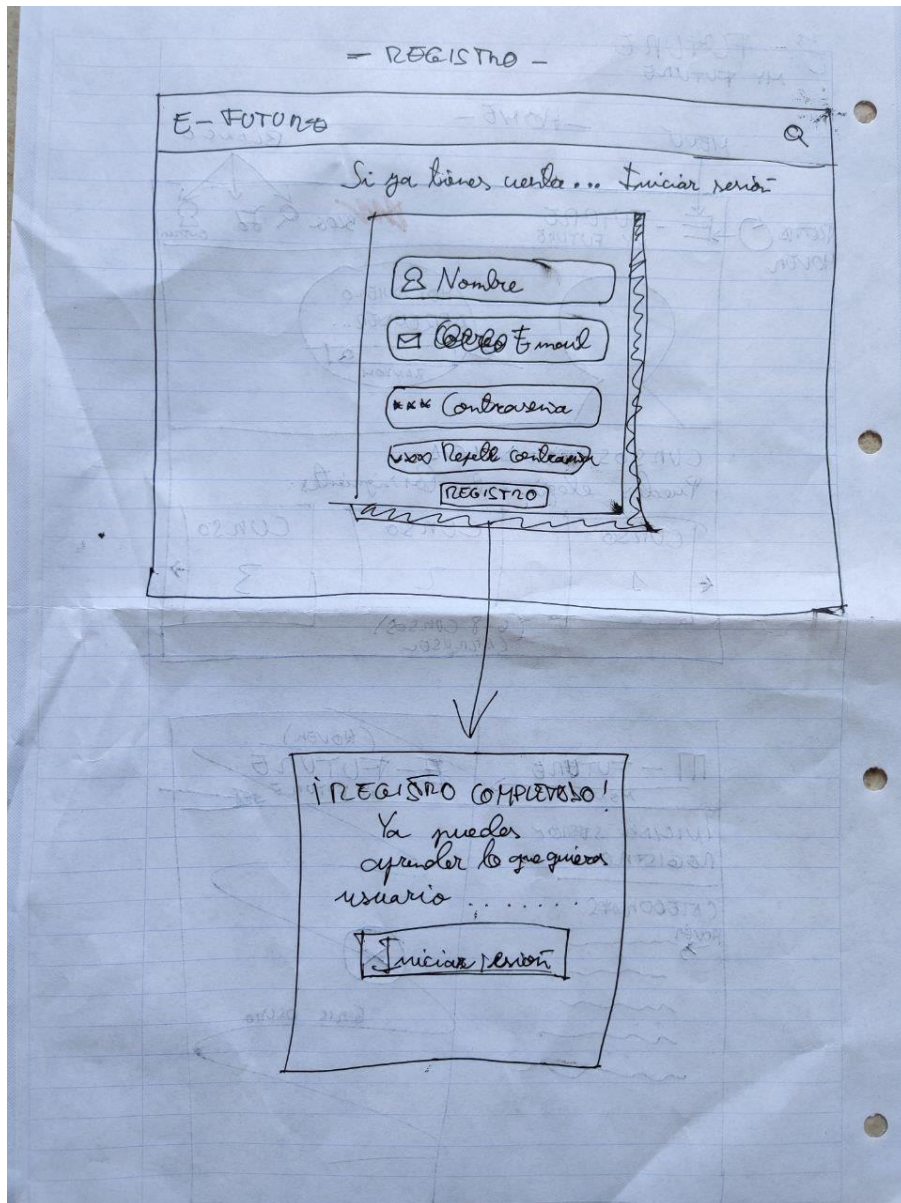 - REGISTRO -
E-FUTURO
Si ya tienes cuenta... Iniciar sesión
Nombre
Email
*** Contraseña
Repite contraseña
REGISTRO
¡REGISTRO COMPLETADO!
Ya puedes
aprender lo que quieras
usuario .......
Iniciar sesión